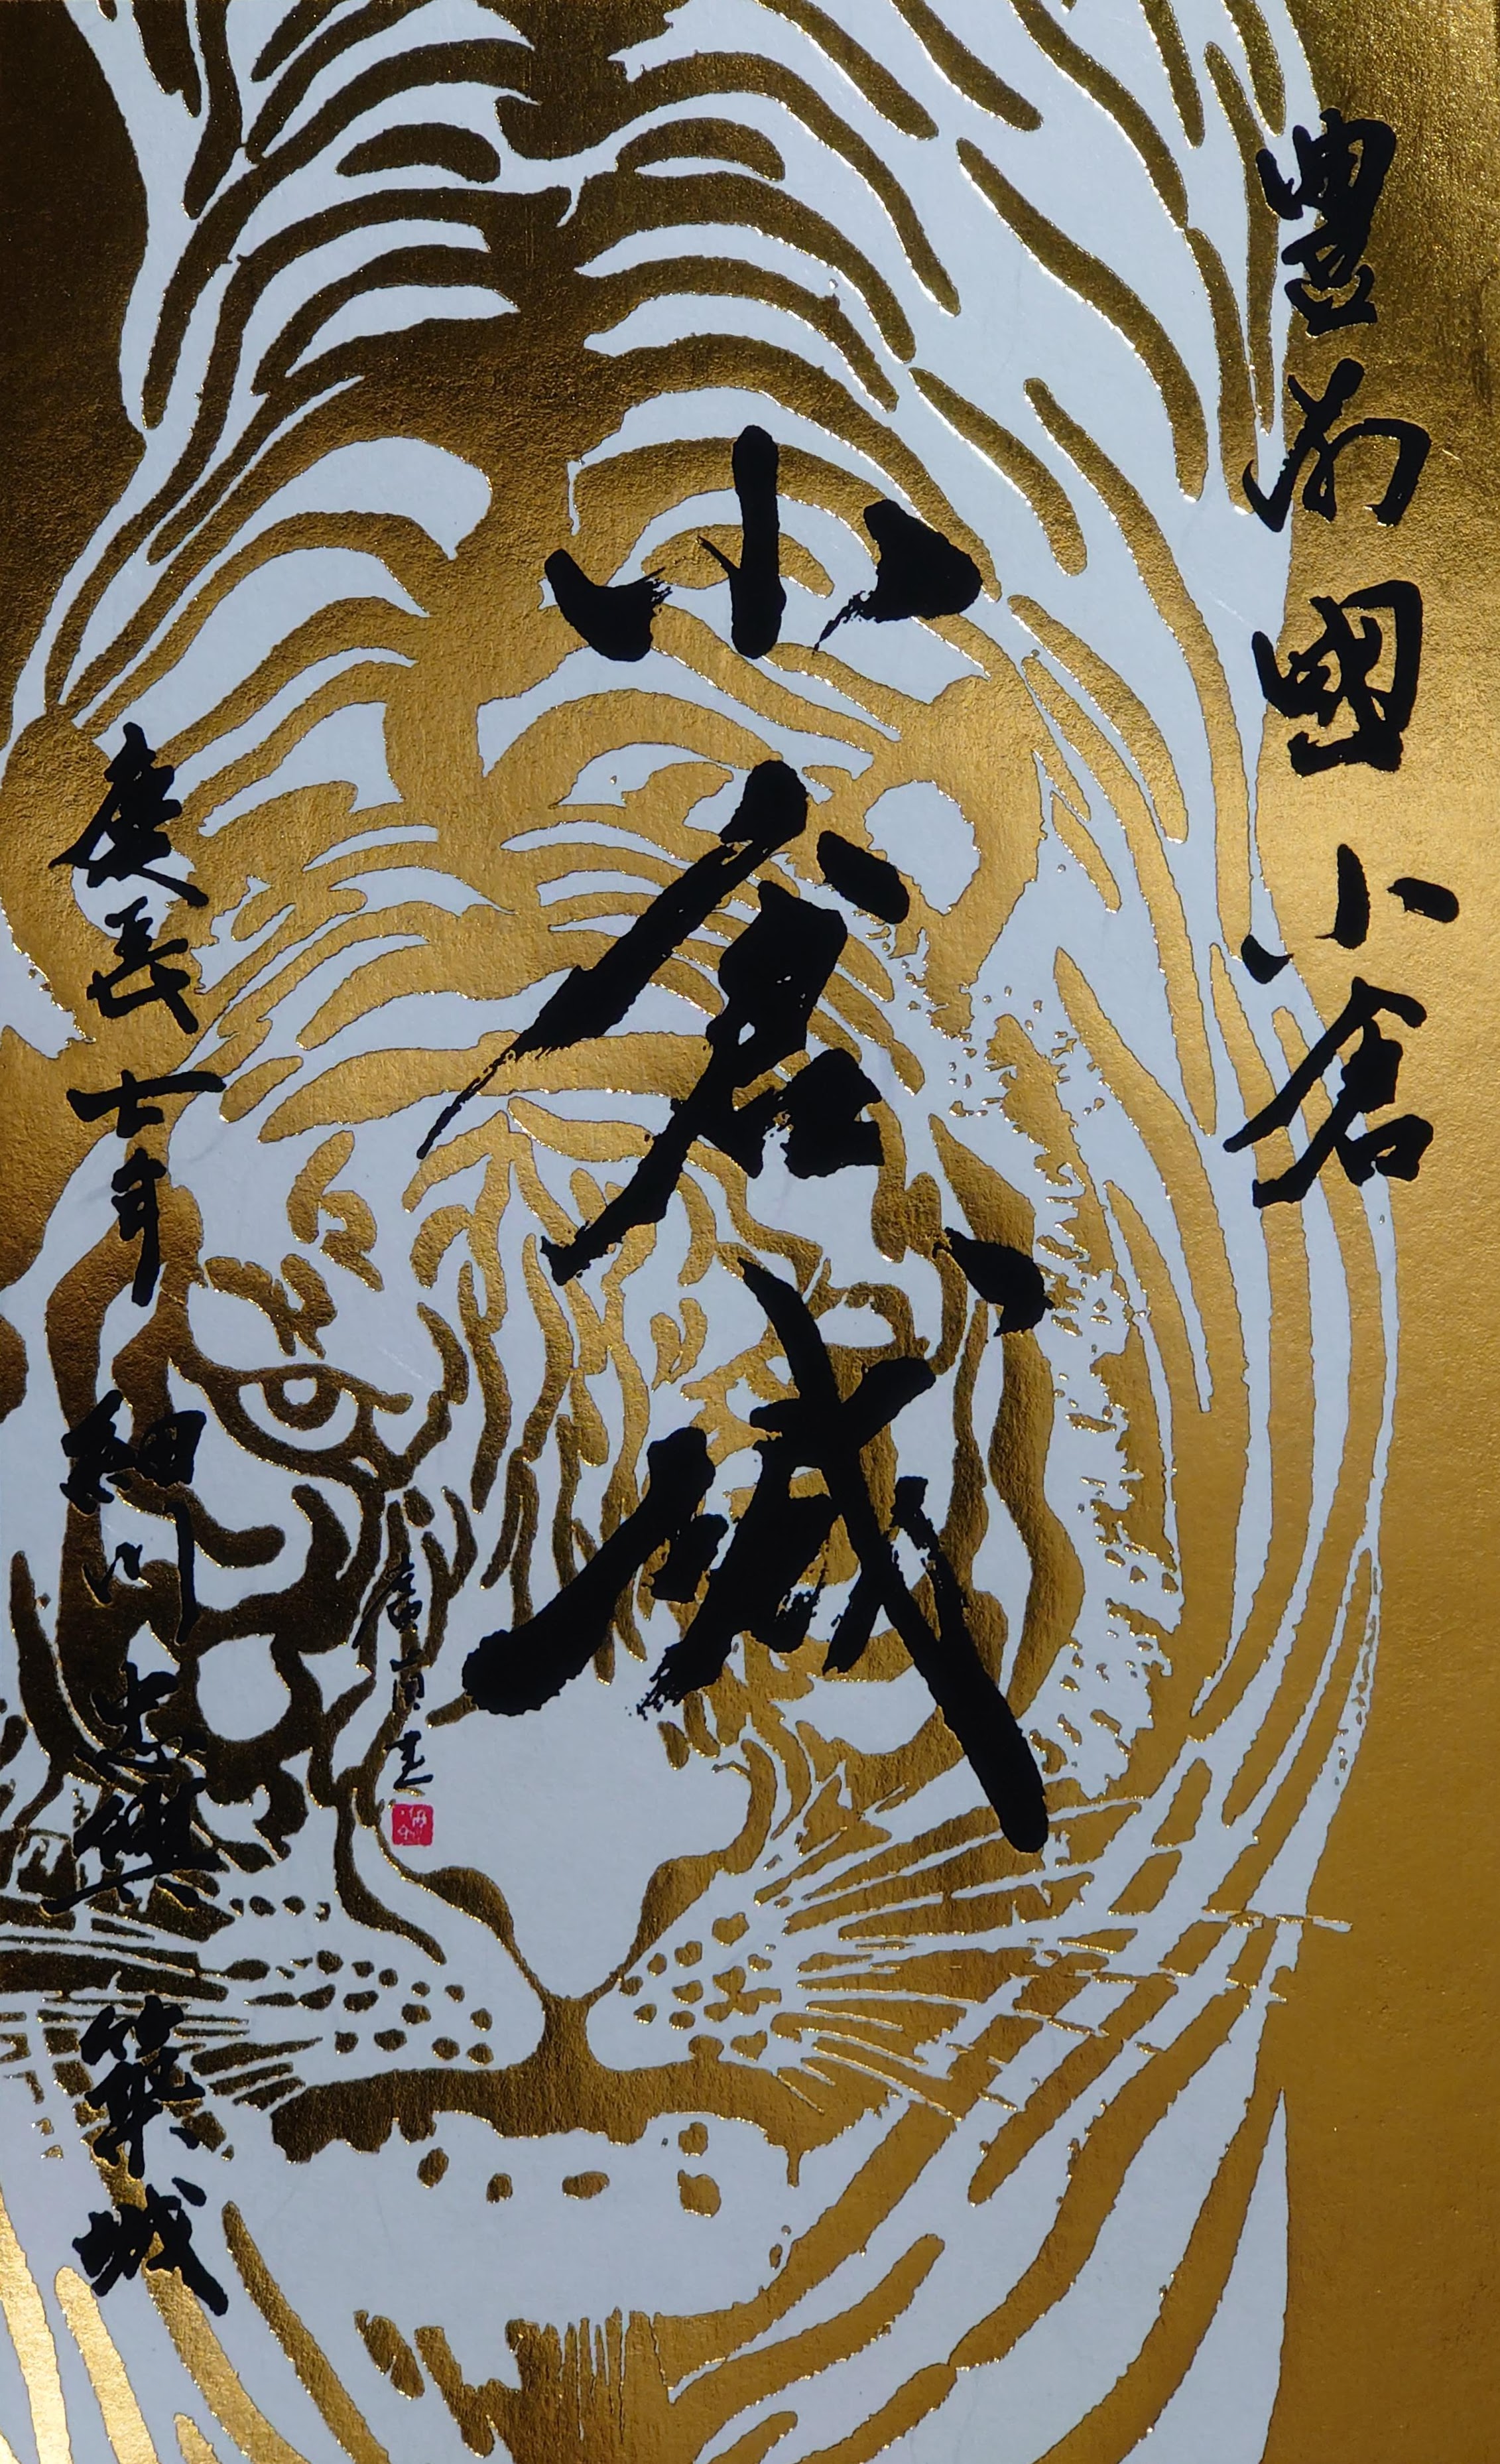 豊前國 小倉
小倉城
慶長七年 細川忠興 築城